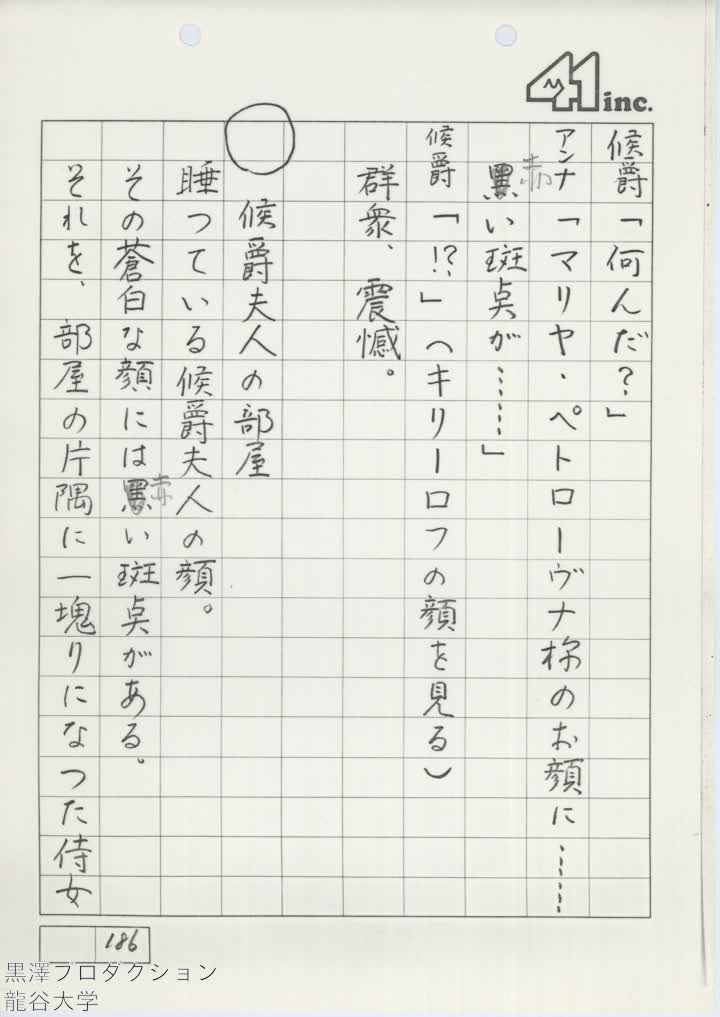 41 inc.
候爵「何んだ？」
アンナ「マリヤ・ペトローヴナ様のお顔に……
赤い斑点が……」
候爵「!?」（キリーロフの顔を見る）
群衆、震憾。
○
候爵夫人の部屋
睡つている候爵夫人の顔。
その蒼白な顔には赤い斑点がある。
それを、部屋の片隅に一塊りになつた侍女
186
黒澤プロダクション
龍谷大学